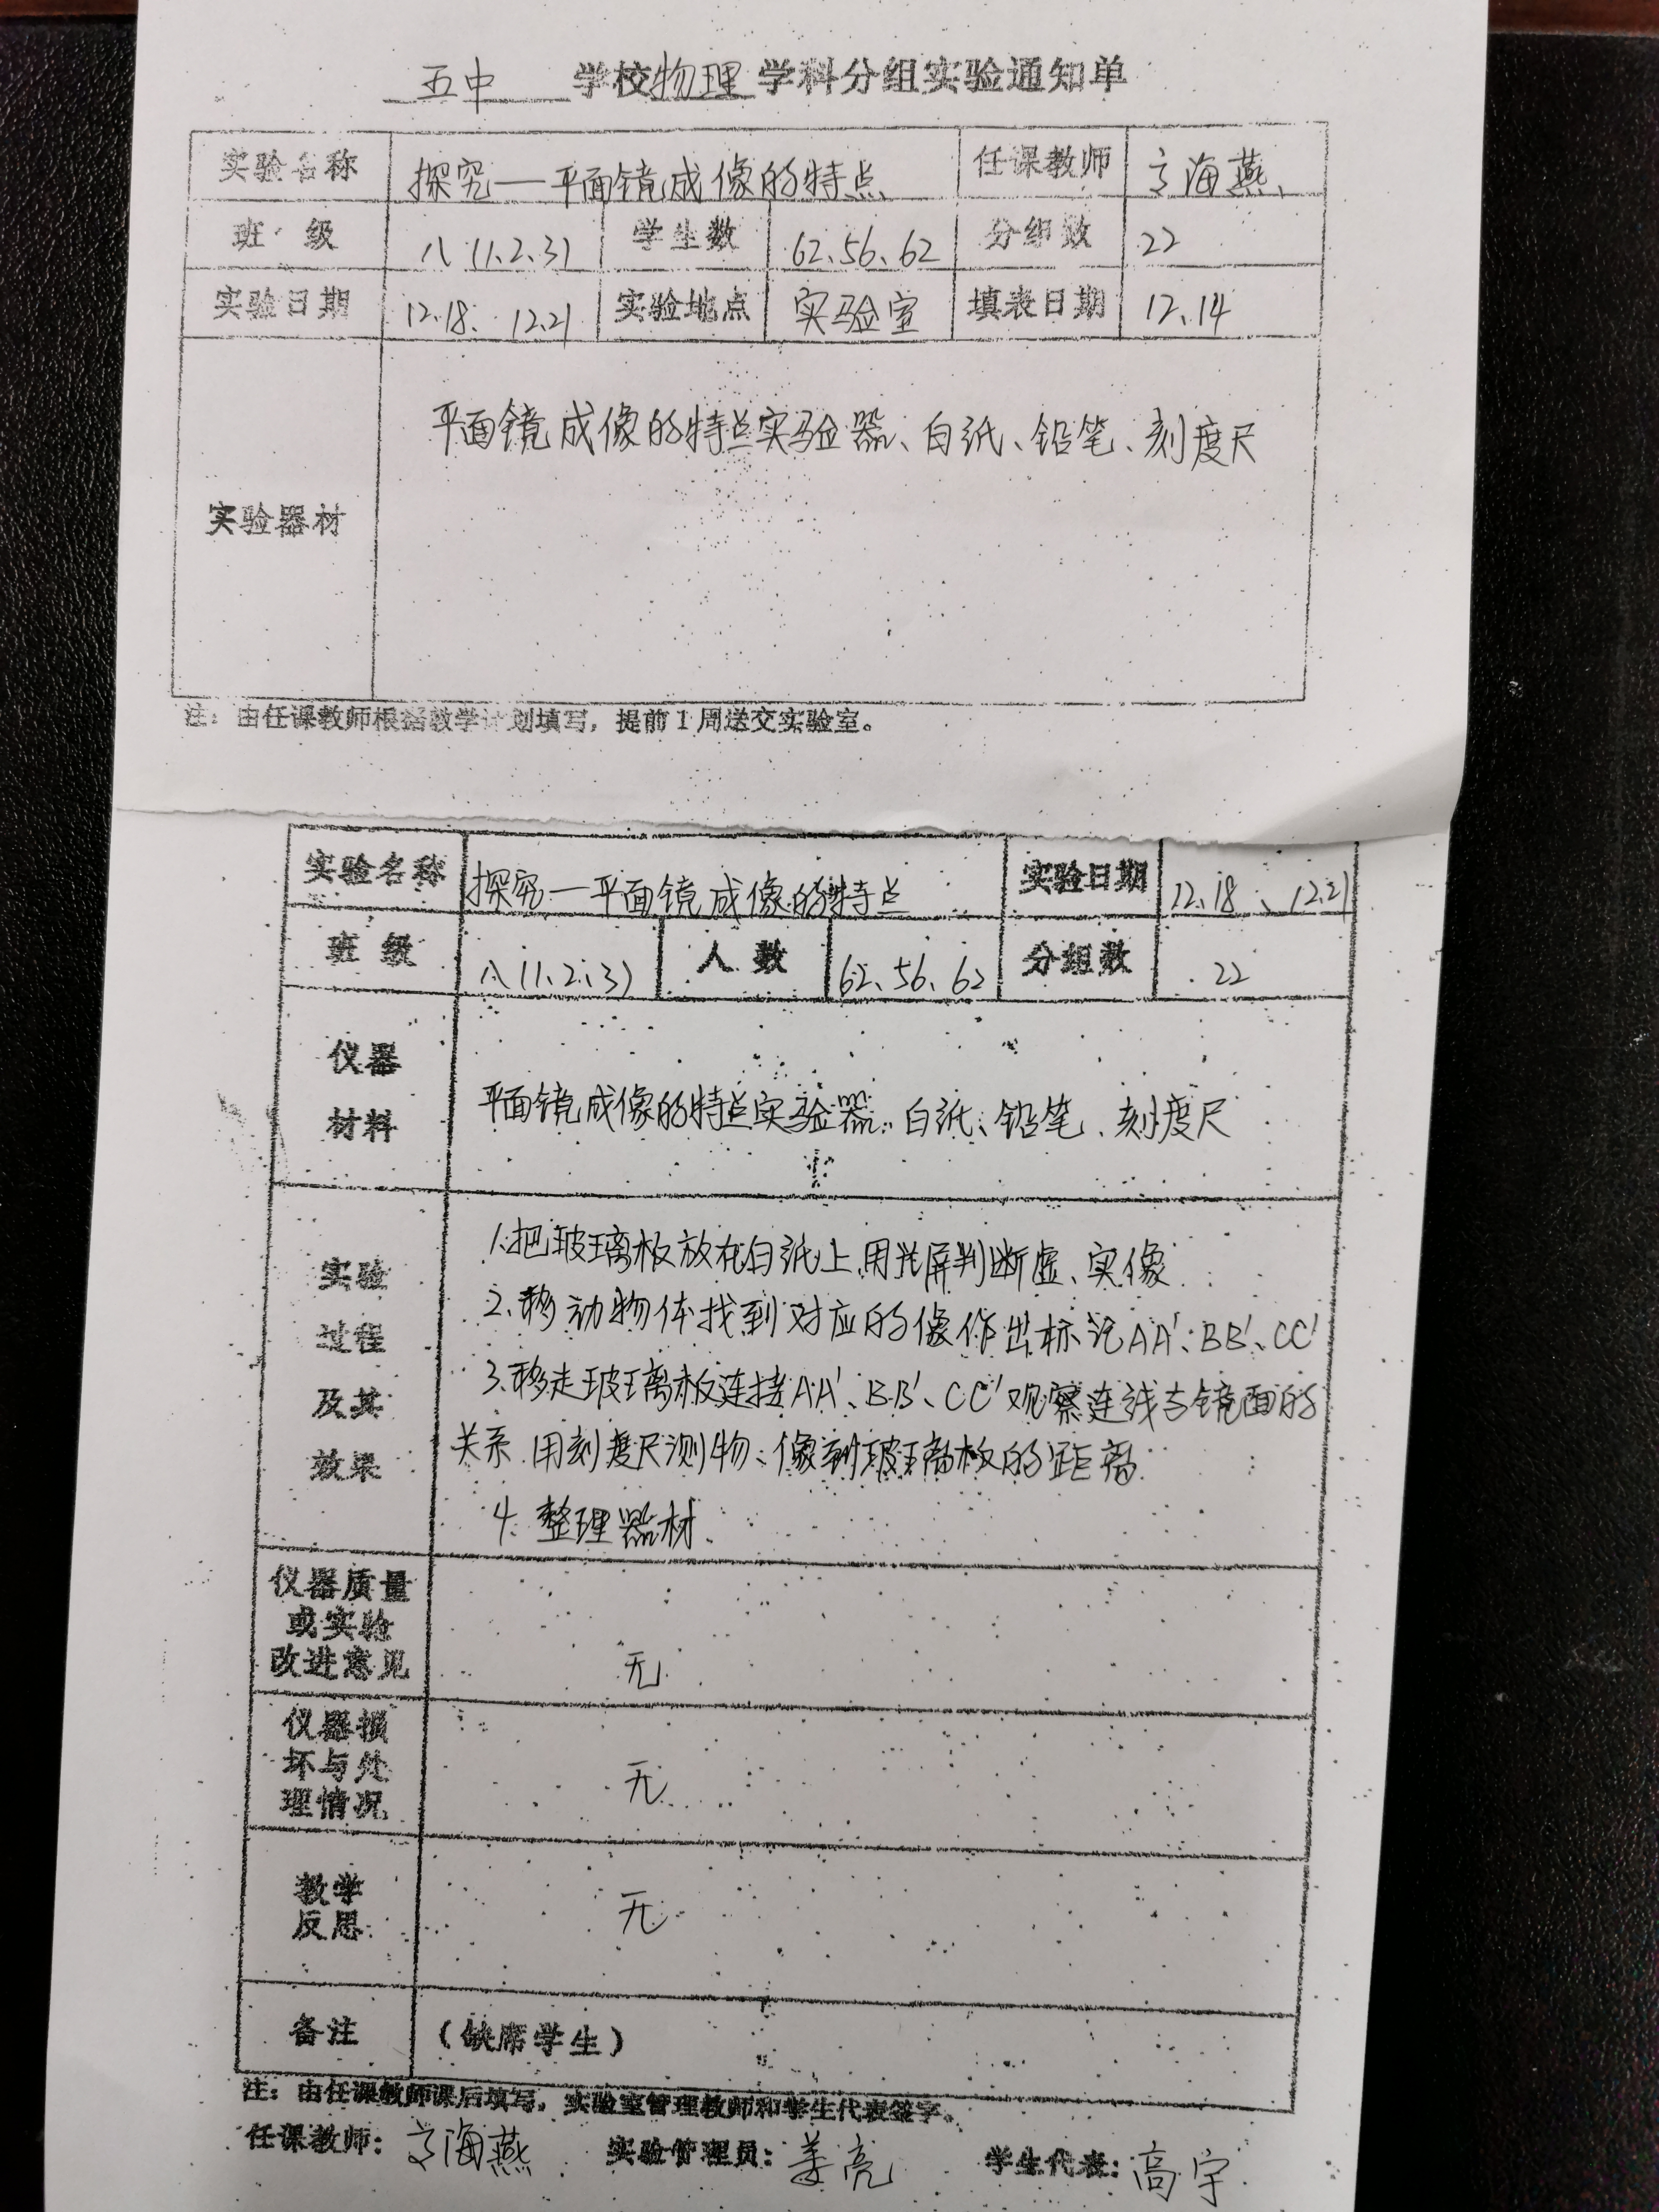 五中 学校物理学科分组实验通知单
实验名称 探究一平面镜成像的特点 任课教师 海燕
班级 八(1.2.3) 学生数 62、56、62 分组数 22
实验日期 12.18、12.21 实验地点 实验室 填表日期 12、14
平面镜成像的特点实验器、白纸、铅笔、刻度尺
实验器材
注：由任课教师根据教学计划填写，提前1周送交实验室。
实验名称 探究一平面镜成像的特点 实验日期 12.18、12.21
班级 八(1.2.3) 人数 62、56、62 分组数 22
仪器
材料 平面镜成像的特点实验器、白纸、铅笔、刻度尺
实验
过程
及其
效果
1.把玻璃板放在白纸上用光屏判断虚、实像
2、移动物体找到对应的像作出标记AA'、BB'、CC'
3、移走玻璃板连接AA'、BB'、CC'观察连线与镜面的
关系.用刻度尺测物、像到玻璃板的距离
4.整理器材.
仪器质量
或实验
改进意见 无
仪器损
坏与处
理情况 无
教学
反思 无
备注 （缺席学生）
注：由任课教师课后填写，实验室管理教师和学生代表签字。
任课教师：海燕 实验管理员：姜亮 学生代表：高宇